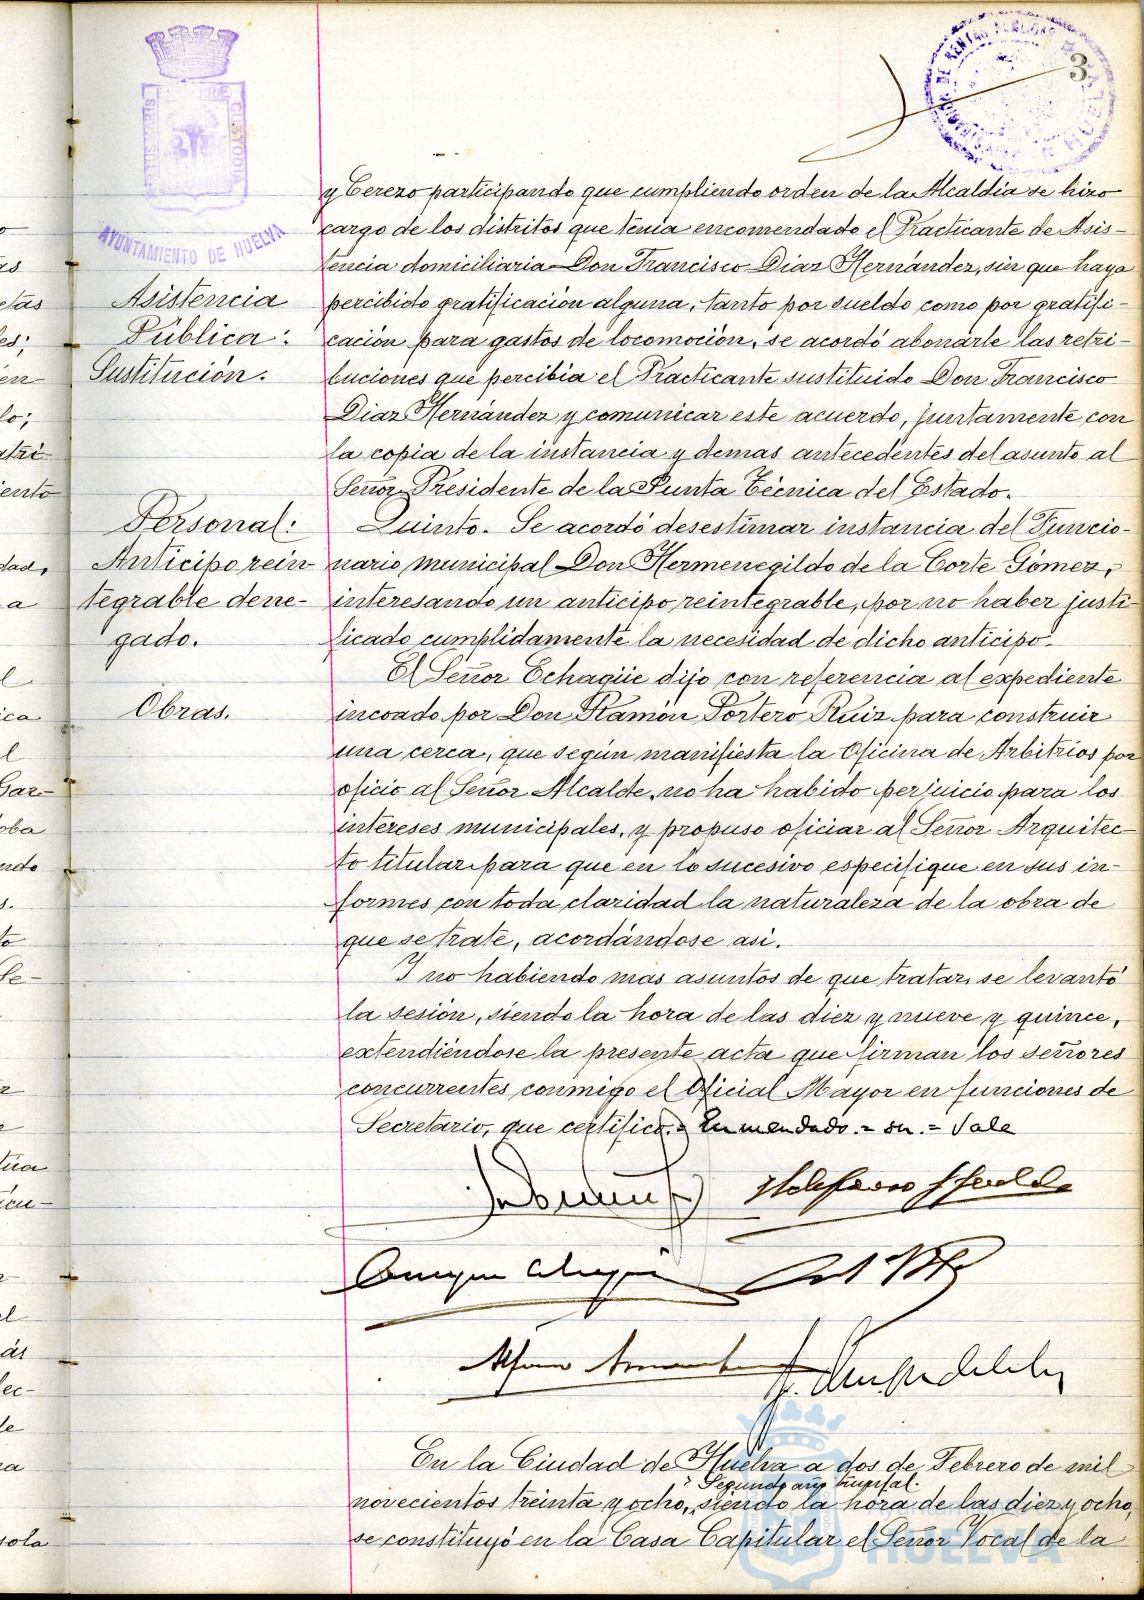 3
AYUNTAMIENTO DE HUELVA
y Cerezo participando que cumpliendo orden de la Alcaldía se hizo
cargo de los distritos que tenia encomendado el Practicante de Asis-
tencia domiciliaria Don Francisco Diaz Hernández, sin que haya
Asistencia
percibido gratificación alguna, tanto por sueldo como por gratifi-
Pública:
cación para gastos de locomoción, se acordó abonarle las retri-
Sustitución.
buciones que percibia el Practicante sustituido Don Francisco
Diaz Hernández y comunicar este acuerdo, juntamente con
la copia de la instancia y demas antecedentes del asunto al
Señor Presidente de la Junta Técnica del Estado.
Personal:
Quinto. Se acordó desestimar instancia del Funcio-
Anticipo rein-
nario municipal Don Hermenegildo de la Corte Gómez,
tegrable dene-
interesando un anticipo reintegrable, por no haber justi-
gado.
ficado cumplidamente la necesidad de dicho anticipo.
El Señor Echagüe dijo con referencia al expediente
Obras.
incoado por Don Ramón Portero Ruiz para construir
una cerca, que según manifiesta la Oficina de Arbitrios por
oficio al Señor Alcalde, no ha habido perjuicio para los
intereses municipales, y propuso oficiar al Señor Arquitec-
to titular para que en lo sucesivo especifique en sus in-
formes con toda claridad la naturaleza de la obra de
que se trate, acordándose asi.
Y no habiendo mas asuntos de que tratar, se levantó
la sesión, siendo la hora de las diez y nueve y quince,
extendiéndose la presente acta que firman los señores
concurrentes conmigo el Oficial Mayor en funciones de
Secretario, que certifico.= Enmendado.= su.= Vale
En la Ciudad de Huelva a dos de Febrero de mil
Segundo año triunfal.
novecientos treinta y ocho, siendo la hora de las diez y ocho,
se constituyó en la Casa Capitular el Señor Vocal de la
HUELVA